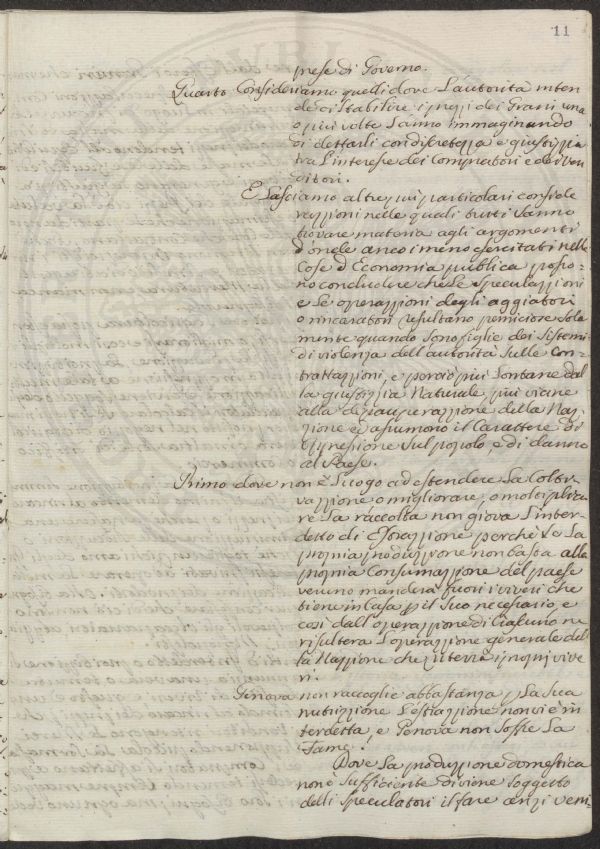 11
prese di Governo.
Quarto Consideriamo quelli dove L'autorità inten
de di stabilire i prezzi dei Grani una
o più volte L'anno immaginando
di dettarli con discretezza e giustizia
tra L'interesse dei Compratori e dei Ven
ditori.
E Lasciamo altre più particolari conside
razzioni nelle quali tutti sanno
trovare materia agli argomenti
d'onde anco i meno esercitati nelle
Cose d'Economia publica posso=
no concludere che Le speculazzioni
e Le operazzioni degli aggiatori
o rincaratori resultano perniciose sola
mente quando sono figlie dei sistemi
di violenza dell'autorità sulle Con=
trattazzioni, e perciò più Lontane dal
la giustizia Naturale, più vicine
alla depauperazzione della Naz
zione ed assumono il Carattere di
oppressione sul popolo, e di danno
al Paese.
Primo dove non è Luogo ad estendere La Colti
vazzione o migliorare, o moltiplica
re La raccolta non giova L'inter=
detto di Esportazzione perchè se La
propria produzzione non basta alla
propria Consumazzione del paese
veruno manderà fuori i viveri che
tiene in Casa p il suo necessario, e
così dall'operazzione di Ciascuno ne
risulterà L'operazzione generale del
la Nazzione che riterrà i propri vive
ri.
Genova non raccoglie abbastanza p La sua
nutrizzione L'estrazzione non vi è in
terdetta, e Genova non soffre La
fame.
Dove La produzzione domestica
non è sufficiente diviene soggetto
delli speculatori il fare anzi veni=